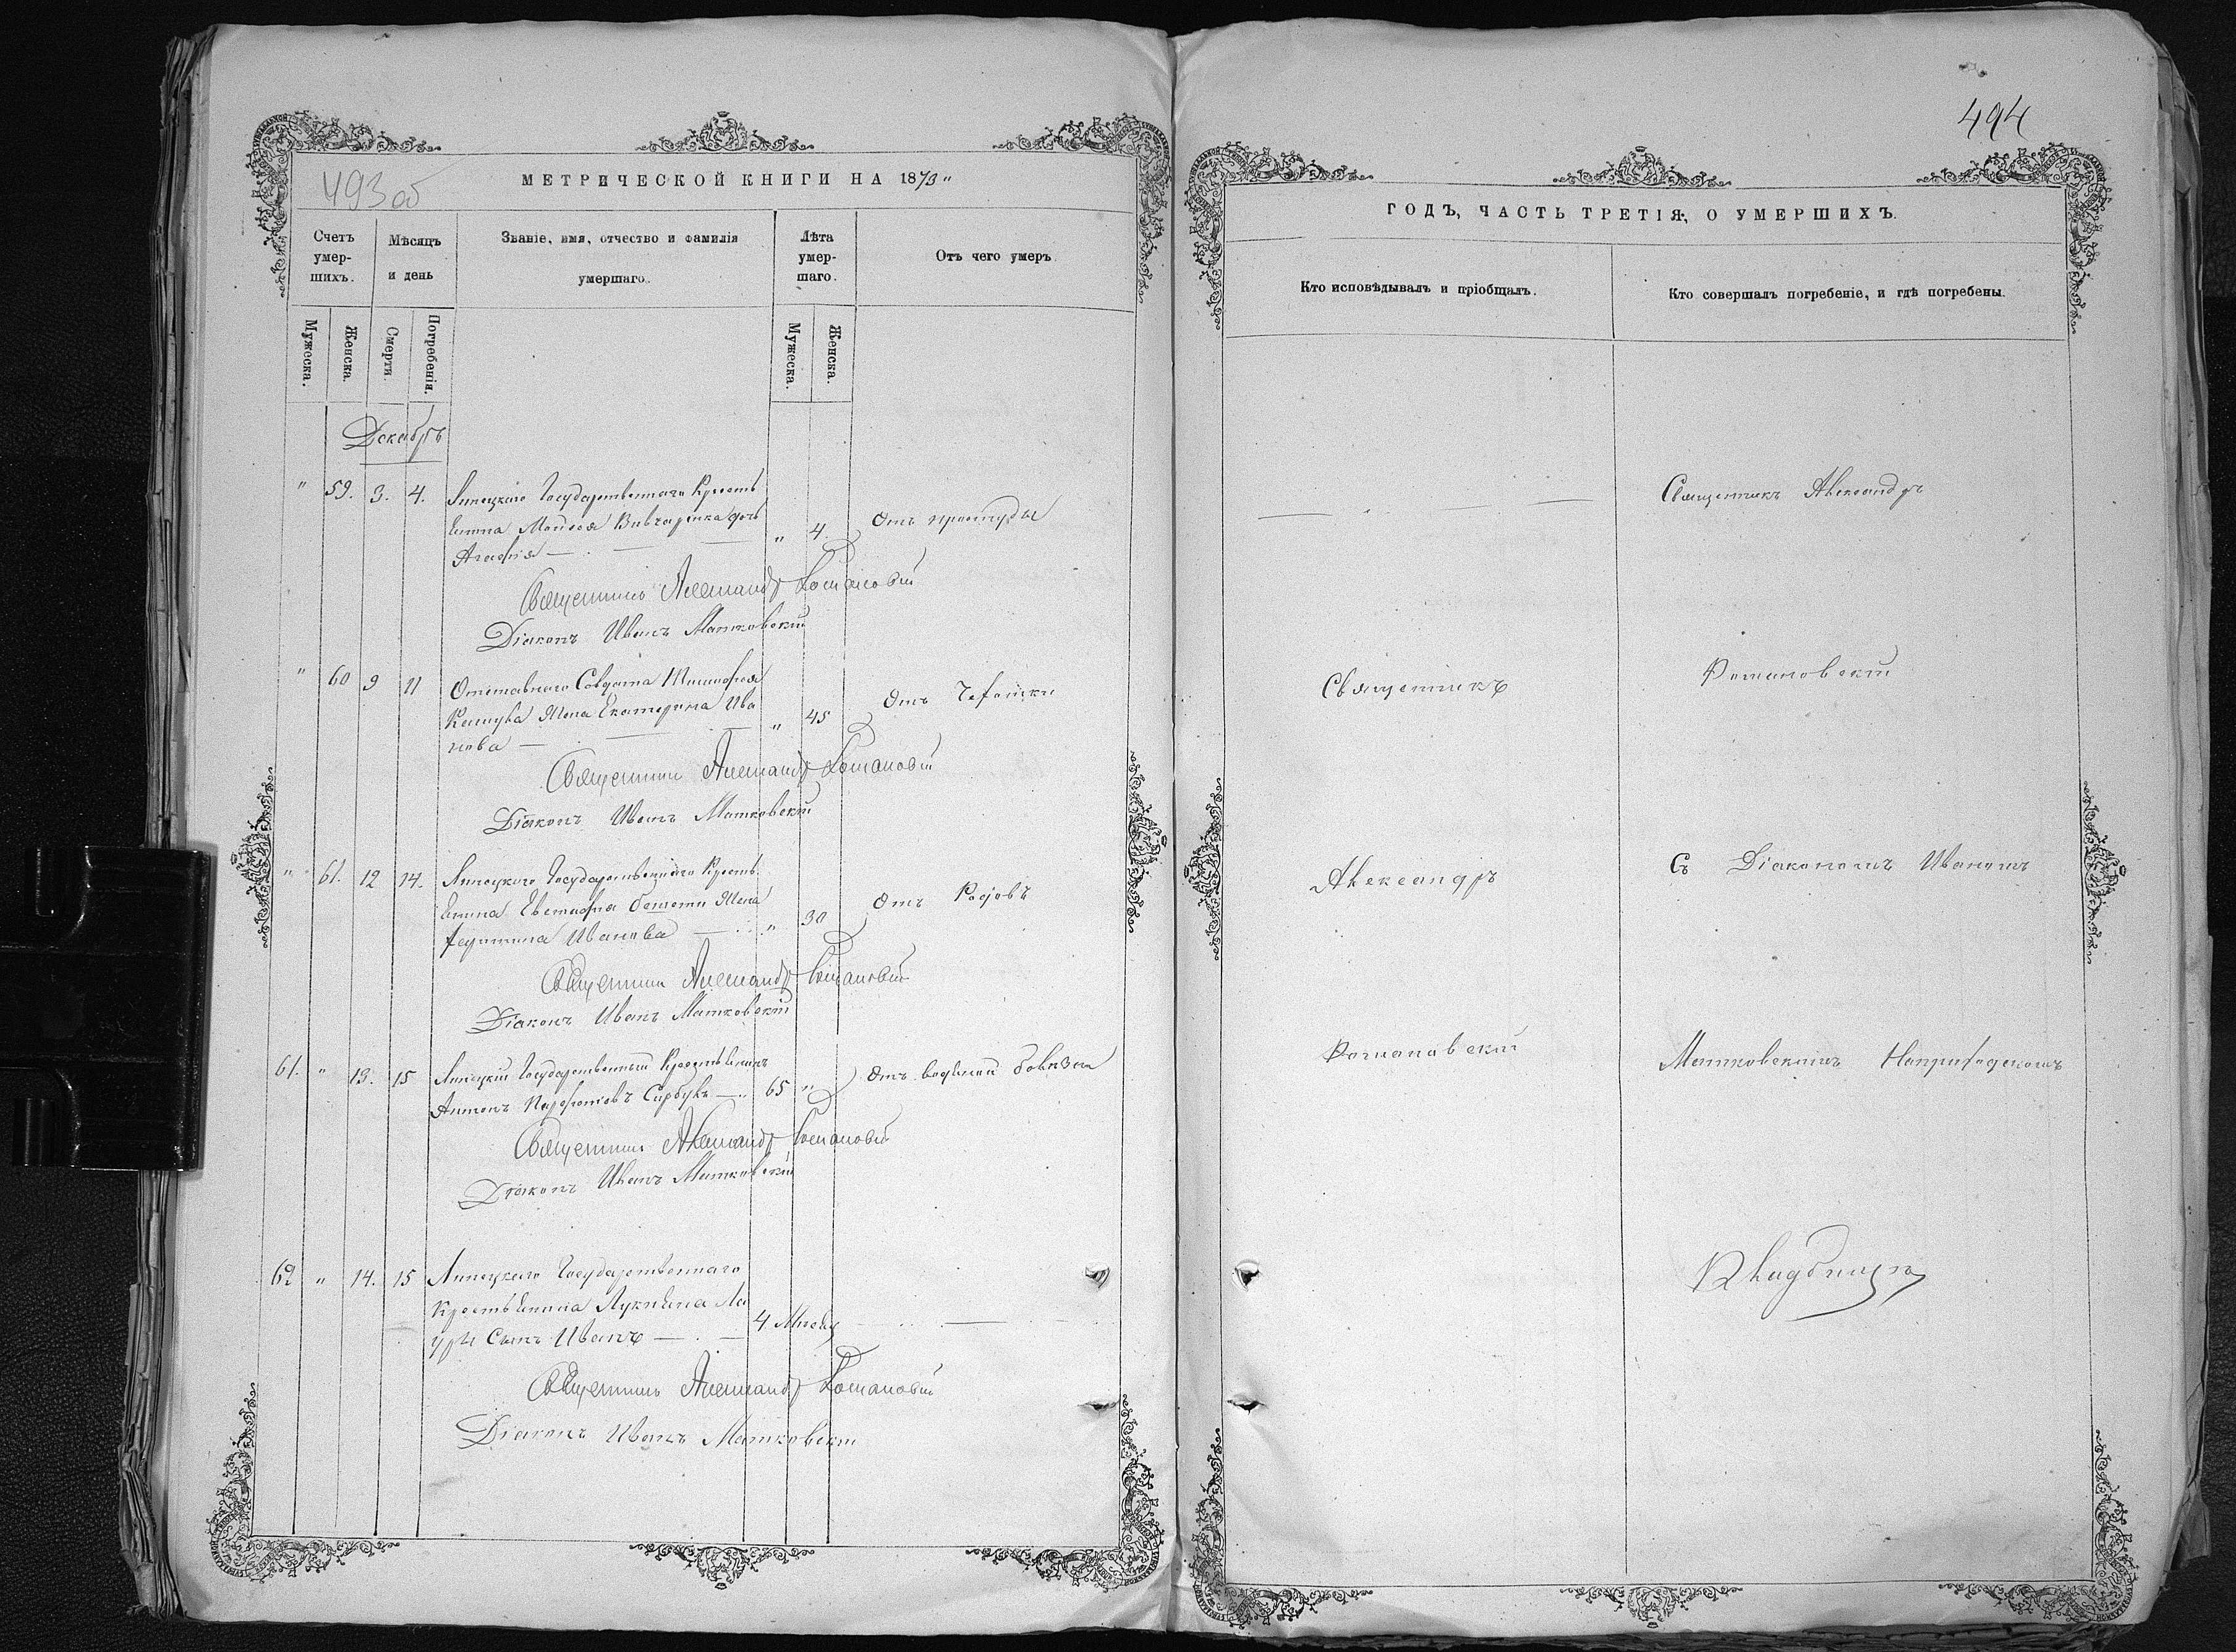 493 об
МЕТРИЧЕСКОЙ КНИГИ НА 1873"
Счетъ умер-шихъ.
Мѣсяцъ и день
Званіе, имя, отчество и фамилія умершаго.
Лѣта умер-шаго.
Отъ чего умеръ.
Мужеска.
Женска.
Смерти.
Погребенія.
Мужеска.
Женска.
Декабрь
" 59. 3. 4. Липецкаго Государственнаго Кресть
янина Мойсея дочь " 4. Отъ простуды
Агафія
Священникъ Александръ Романовскій
Діаконъ Иванъ Матковскій
" 60 9 11 Отставнаго Солдата Тимофея
Жена Екатерина Ива " 45 Отъ Чахотки
нова
Священникъ Александръ Романовскій
Діаконъ Иванъ Матковскій
" 61. 12 14. Липецкаго Государственнаго Кресть
янина Евстафія Жена
Иванова " 30 Отъ Родовъ
Священникъ Александръ Романовскій
Діаконъ Иванъ Матковскій
61. " 13. 15 Липецкій Государственный Крестьянинъ
Антонъ Сырбулъ 65 " Отъ водяной болѣзни
Священникъ Александръ Романовскій
Діаконъ Иванъ Матковскій
62 " 14. 15 Липецкаго Государственнаго
Крестьянина Лукіяна Ла
уры Сынъ Иванъ 4 Мѣсяц
Священникъ Александръ Романовскій
Діаконъ Иванъ Матковскій
494
ГОДЪ, ЧАСТЬ ТРЕТІЯ, О УМЕРШИХЪ.
Кто исповѣдывалъ и пріобщалъ.
Кто совершалъ погребеніе, и гдѣ погребены.
Священникъ Александръ
Священникъ
Романовскій
Александръ
Съ Діакономъ Иваномъ
Романовскій
Матковскимъ Наприходскомъ
Кладбищѣ